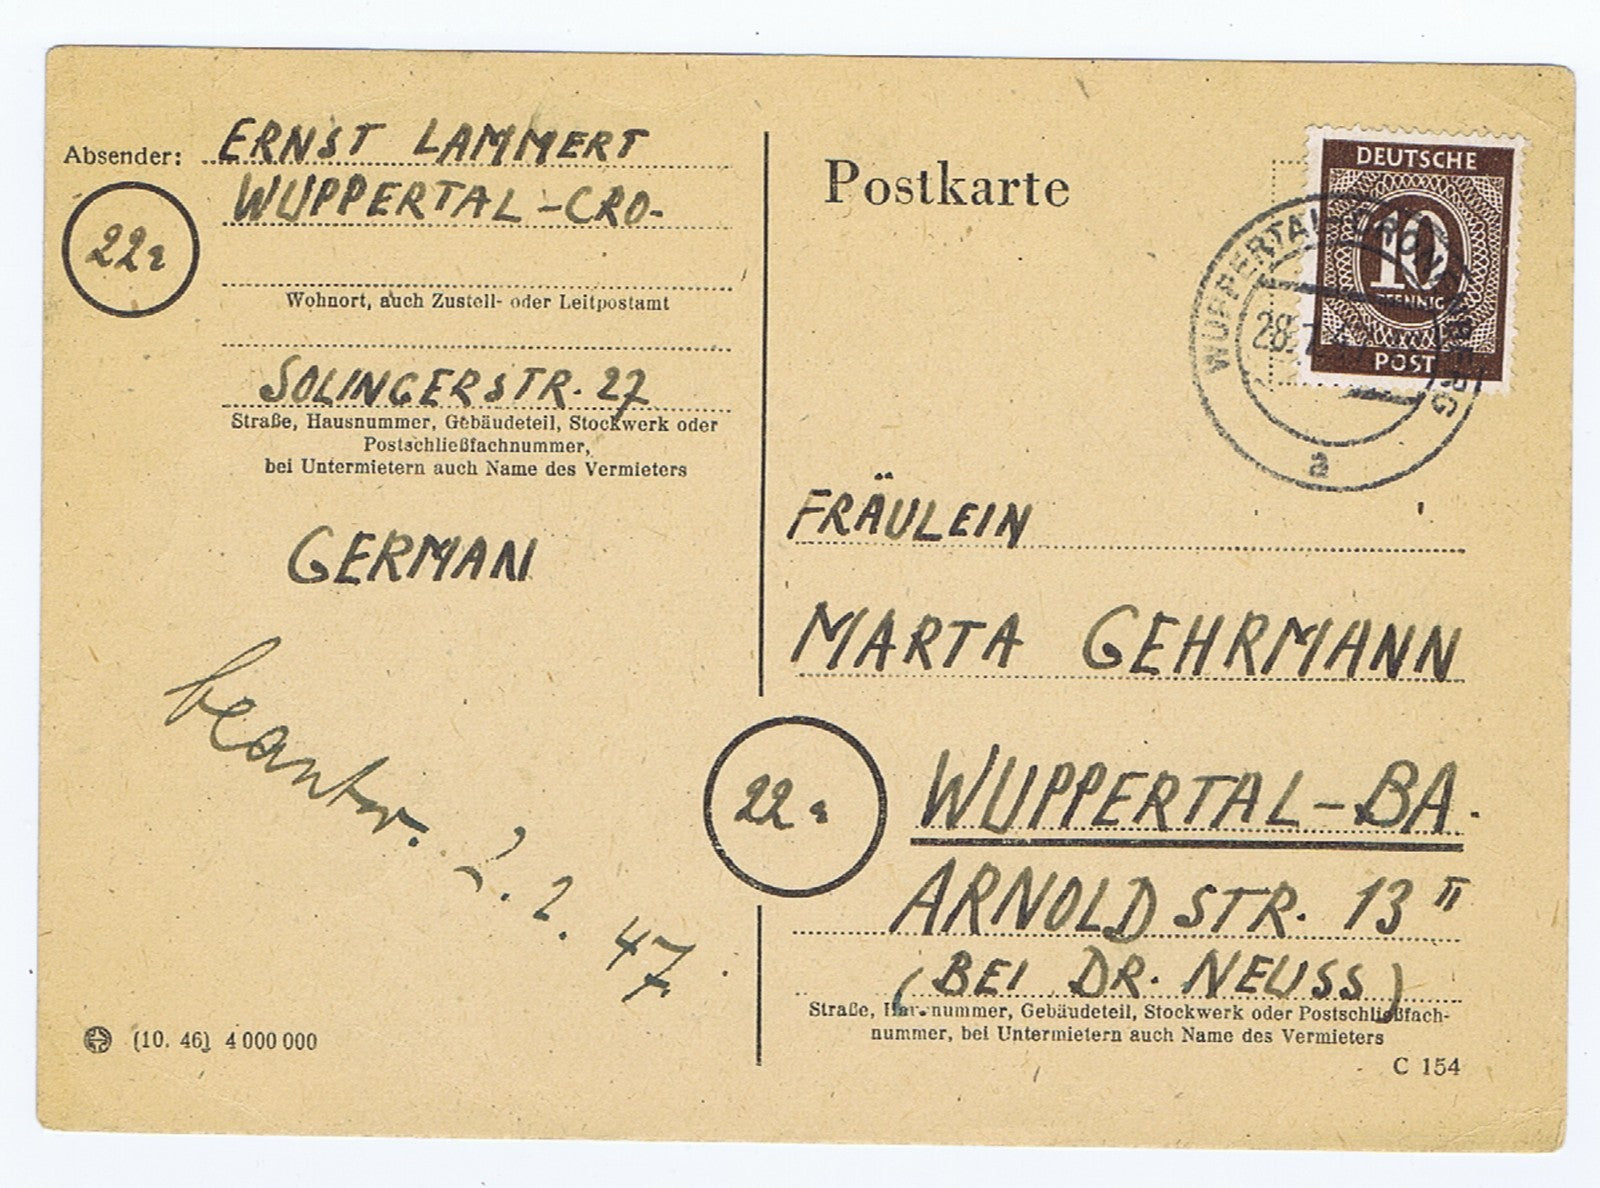 Absender: ERNST LAMMERT
WUPPERTAL-CRO-
22a
Wohnort, auch Zustell- oder Leitpostamt
SOLINGERSTR. 27
Straße, Hausnummer, Gebäudeteil, Stockwerk oder
Postschließfachnummer,
bei Untermietern auch Name des Vermieters
GERMAN
beantw. 2. 2. 47.
(10. 46) 4 000 000
Postkarte
DEUTSCHE
10
PFENNIG
POST
WUPPERTAL-CRONENBERG
28.1.47
a
FRÄULEIN
MARTA GEHRMANN
22a
WUPPERTAL-BA.
ARNOLDSTR. 13 II
(BEI DR. NEUSS)
Straße, Hausnummer, Gebäudeteil, Stockwerk oder Postschließfach-
nummer, bei Untermietern auch Name des Vermieters
C 154